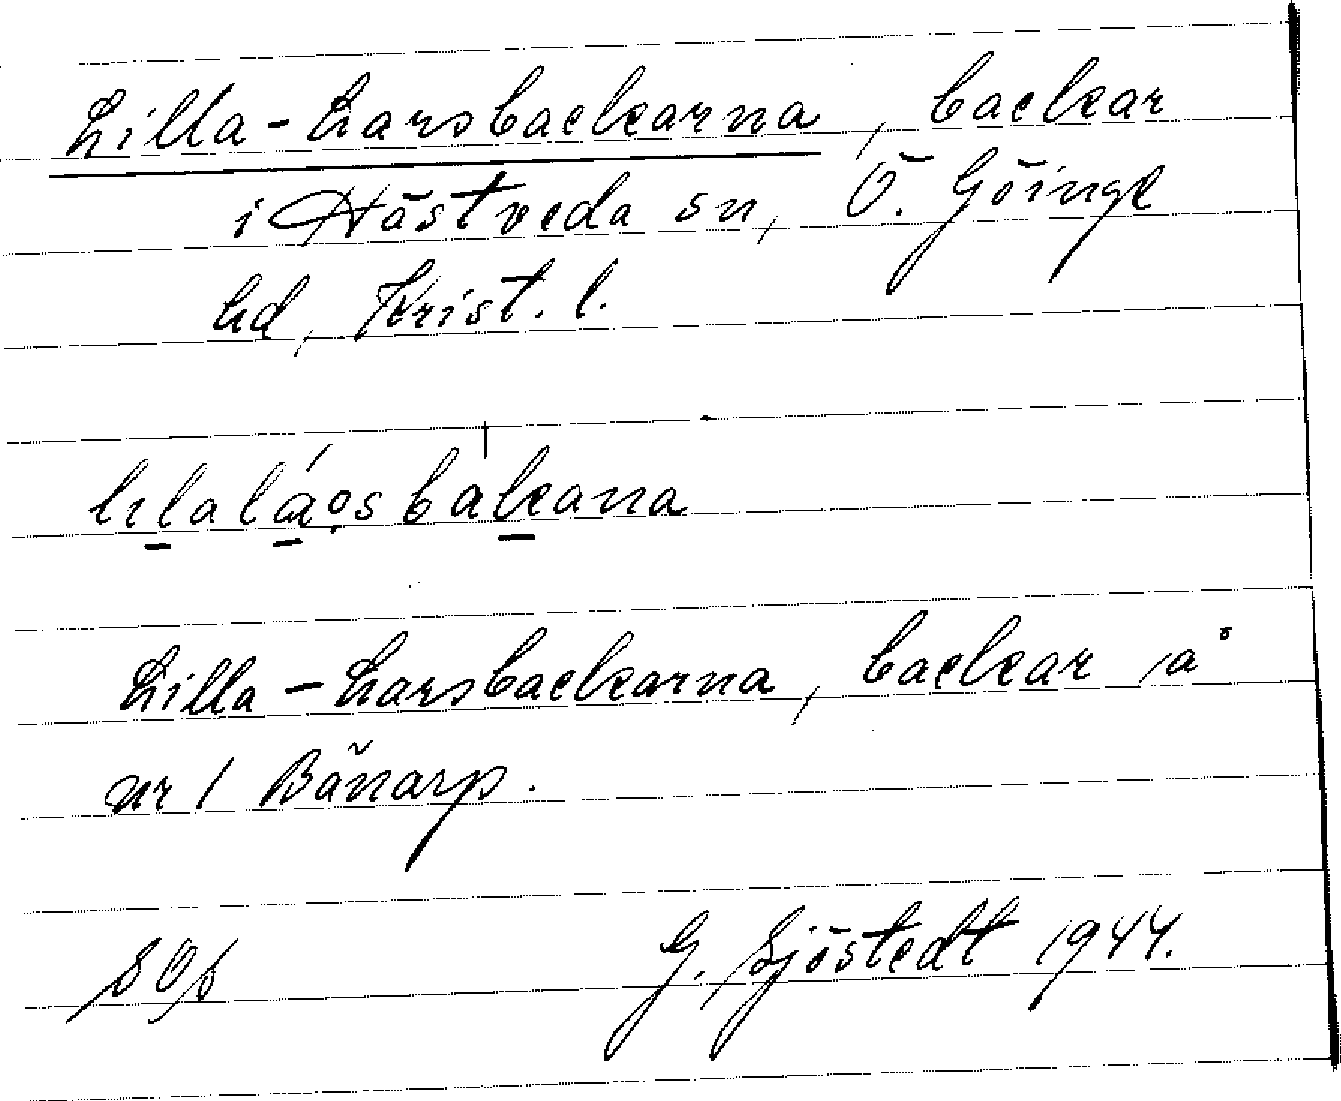 Lilla-Larsbackarna, backar
i Hästveda sn, Ö. Göinge
hd, Krist. l.
Lilla-Larsbackarna, backar å
nr 1 Bånarp.
G. Sjöstedt 1944.